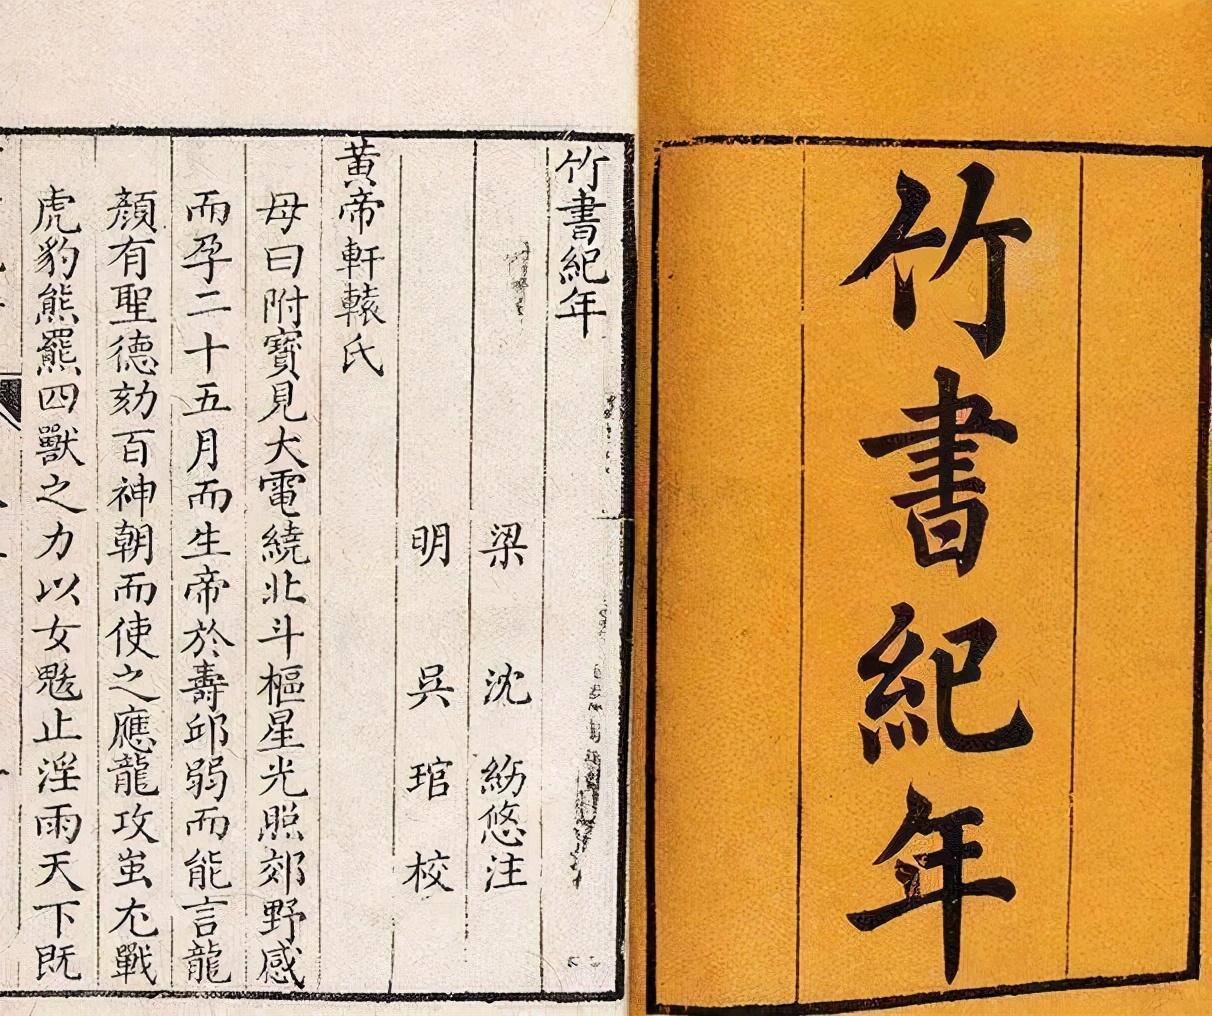 竹書紀年
竹書紀年
梁沈約悠注
明吳琯校
黃帝軒轅氏
母曰附寶見大電繞北斗樞星光照郊野感
而孕二十五月而生帝於壽邱弱而能言龍
顏有聖德劾百神朝而使之應龍攻蚩尤戰
虎豹熊羆四獸之力以女魃止淫雨天下既